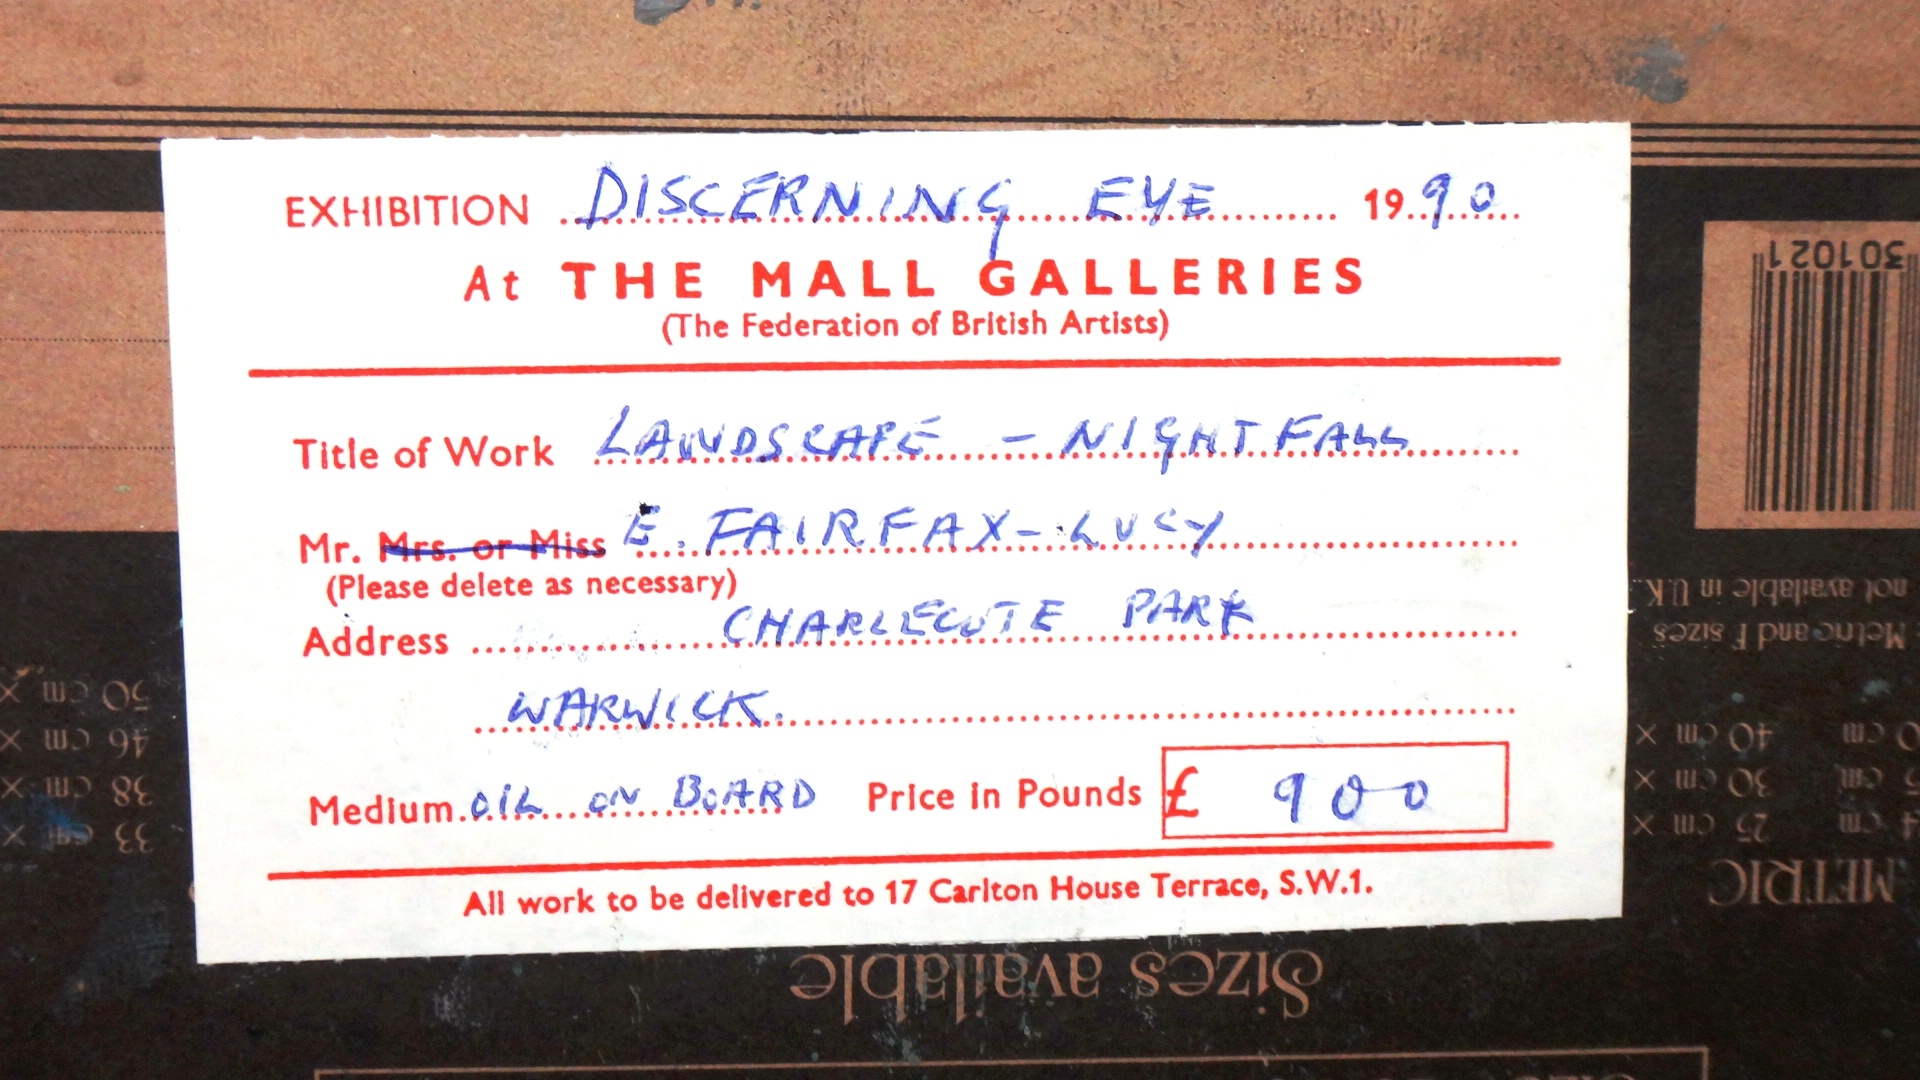 EXHIBITION DISCERNING EYE 1990
At THE MALL GALLERIES
(The Federation of British Artists)
Title of Work LANDSCAPE - NIGHTFALL
Mr. Mrs. or Miss E. FAIRFAX-LUCY
(Please delete as necessary)
Address CHARLECOTE PARK
WARWICK.
Medium OIL on BOARD Price in Pounds £ 900
All work to be delivered to 17 Carlton House Terrace, S.W.1.
Sizes available
METRIC
25 cm ×
30 cm ×
40 cm ×
33 cm ×
38 cm ×
46 cm ×
50 cm ×
Metric and F sizes
not available in U.K.
301021